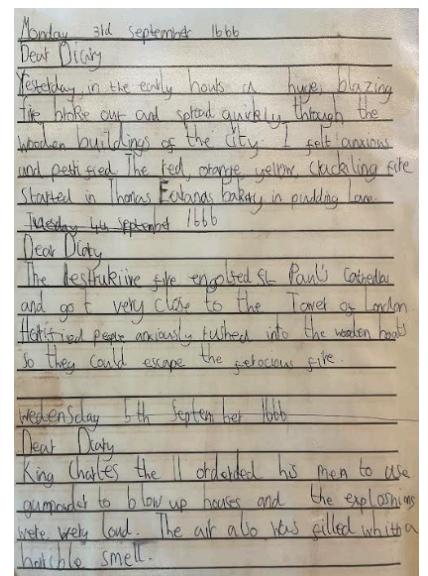 Monday 3rd september 1666
Dear Diary
Yesterday, in the early hours a huge, blazing
fire broke out and spread quickly through the
wooden buildings of the city. I felt anxious
and petrified. The red, orange yellow, crackiling fire
started in Thomas bakery in pudding lane
Tuesday 4th september 1666
Dear Diary
The destrukiive fire engolfed St Paul's Cathedral
and got very close to the Tower of London
Horrified people anxiously rushed into the wooden boats
so they could escape the ferocious fire.
Wedensday 5th September 1666
Dear Diary
King Charles the II orderded his men to use
gunpowder to blow up houses and the exploshions
were very loud. The air also was filled whith a
horrible smell.